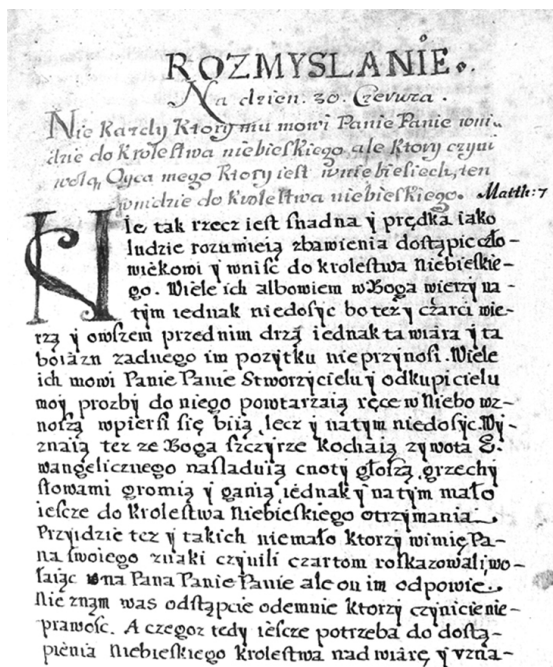 ROZMYSLANIE.
Na dzien. 30. Czerwca.
Nie Kazdy Ktory mu mowi Panie Panie wni-
dzie do krolestwa niebieskiego ale ktory czyni
wolą Oyca mego Ktory iest w niebiesiech, ten
wnidzie do krolestwa niebieskiego. Matth: 7
Nie tak rzecz iest snadna y prędka iako
ludzie rozumieią zbawienia dostąpic czło-
wiekowi y wniść do krolestwa Niebieskie-
go. Wiele ich albowiem w Boga wierzy na
tym iednak niedosyc bo tez y czarci wie-
rzą y owszem przed nim drzą iednak ta wiara y ta
boiazn zadnego im pozytku nie przynosi. Wiele
ich mowi Panie Panie Stworzycielu y odkupicielu
moy, prozby do niego powtarzaią ręce w Niebo wz-
noszą w piersi się biią, lecz y na tym niedosyc. Wy-
znaią tez ze Boga szczyrze kochaią zywota E-
wangelicznego nasladuią cnoty głoszą grzechy
słowami gromią y ganią iednak y na tym mało
iescze do Krolestwa Niebieskiego otrzymania.
Przyidzie tez y takich niemało ktorzy w imię Pa-
na swoiego znaki czynili czartom roskazowali, wo-
łaiąc na Pana Panie Panie ale on im odpowie.
Nie znam was odstąpcie odemnie ktorzy czynicie nie-
prawosc. A czegoz tedy iescze potrzeba do dostą-
pienia Niebieskiego krolestwa nad wiarę y vzna-